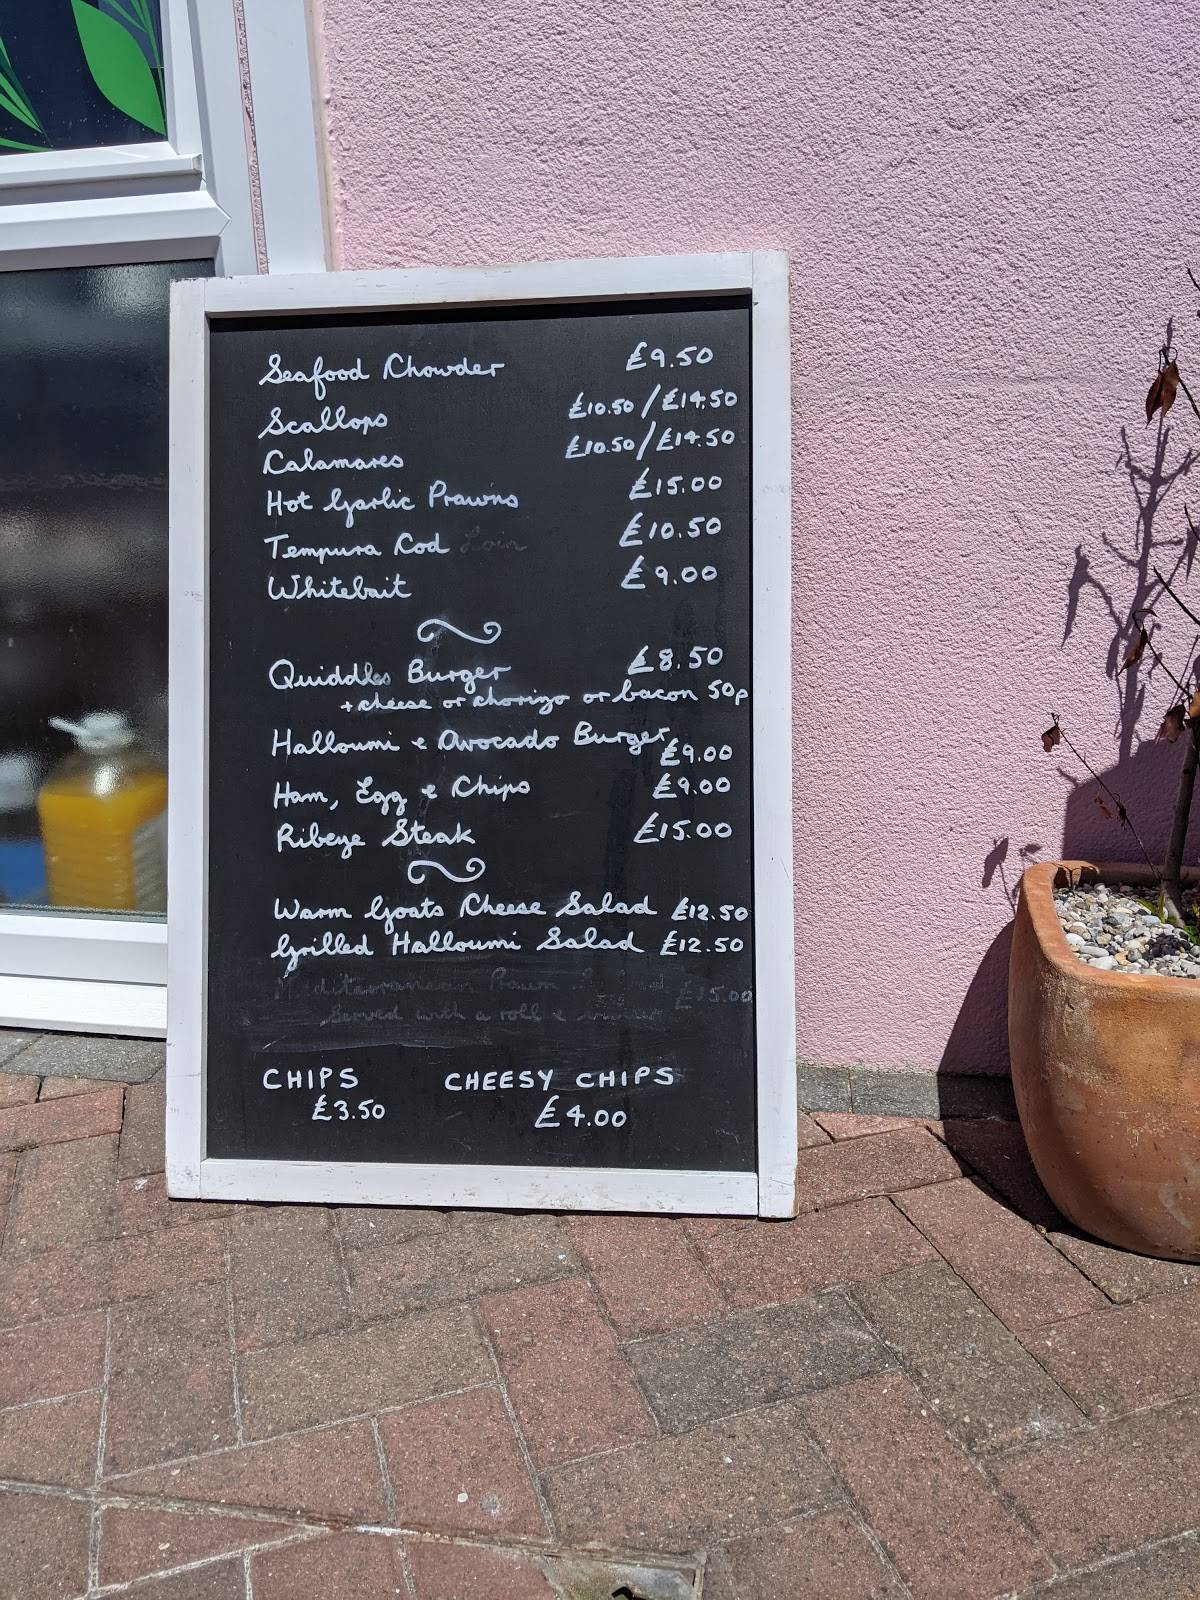 Seafood Chowder £9.50
Scallops £10.50/£14.50
Calamares £10.50/£14.50
Hot Garlic Prawns £15.00
Tempura Cod Loin £10.50
Whitebait £9.00
Quiddles Burger £8.50
+ cheese or chorizo or bacon 50p
Halloumi & Avocado Burger £9.00
Ham, Egg & Chips £9.00
Ribeye Steak £15.00
Warm Goats Cheese Salad £12.50
Grilled Halloumi Salad £12.50
Mediterranean Prawn £15.00
Served with a roll &
CHIPS CHEESY CHIPS
£3.50 £4.00